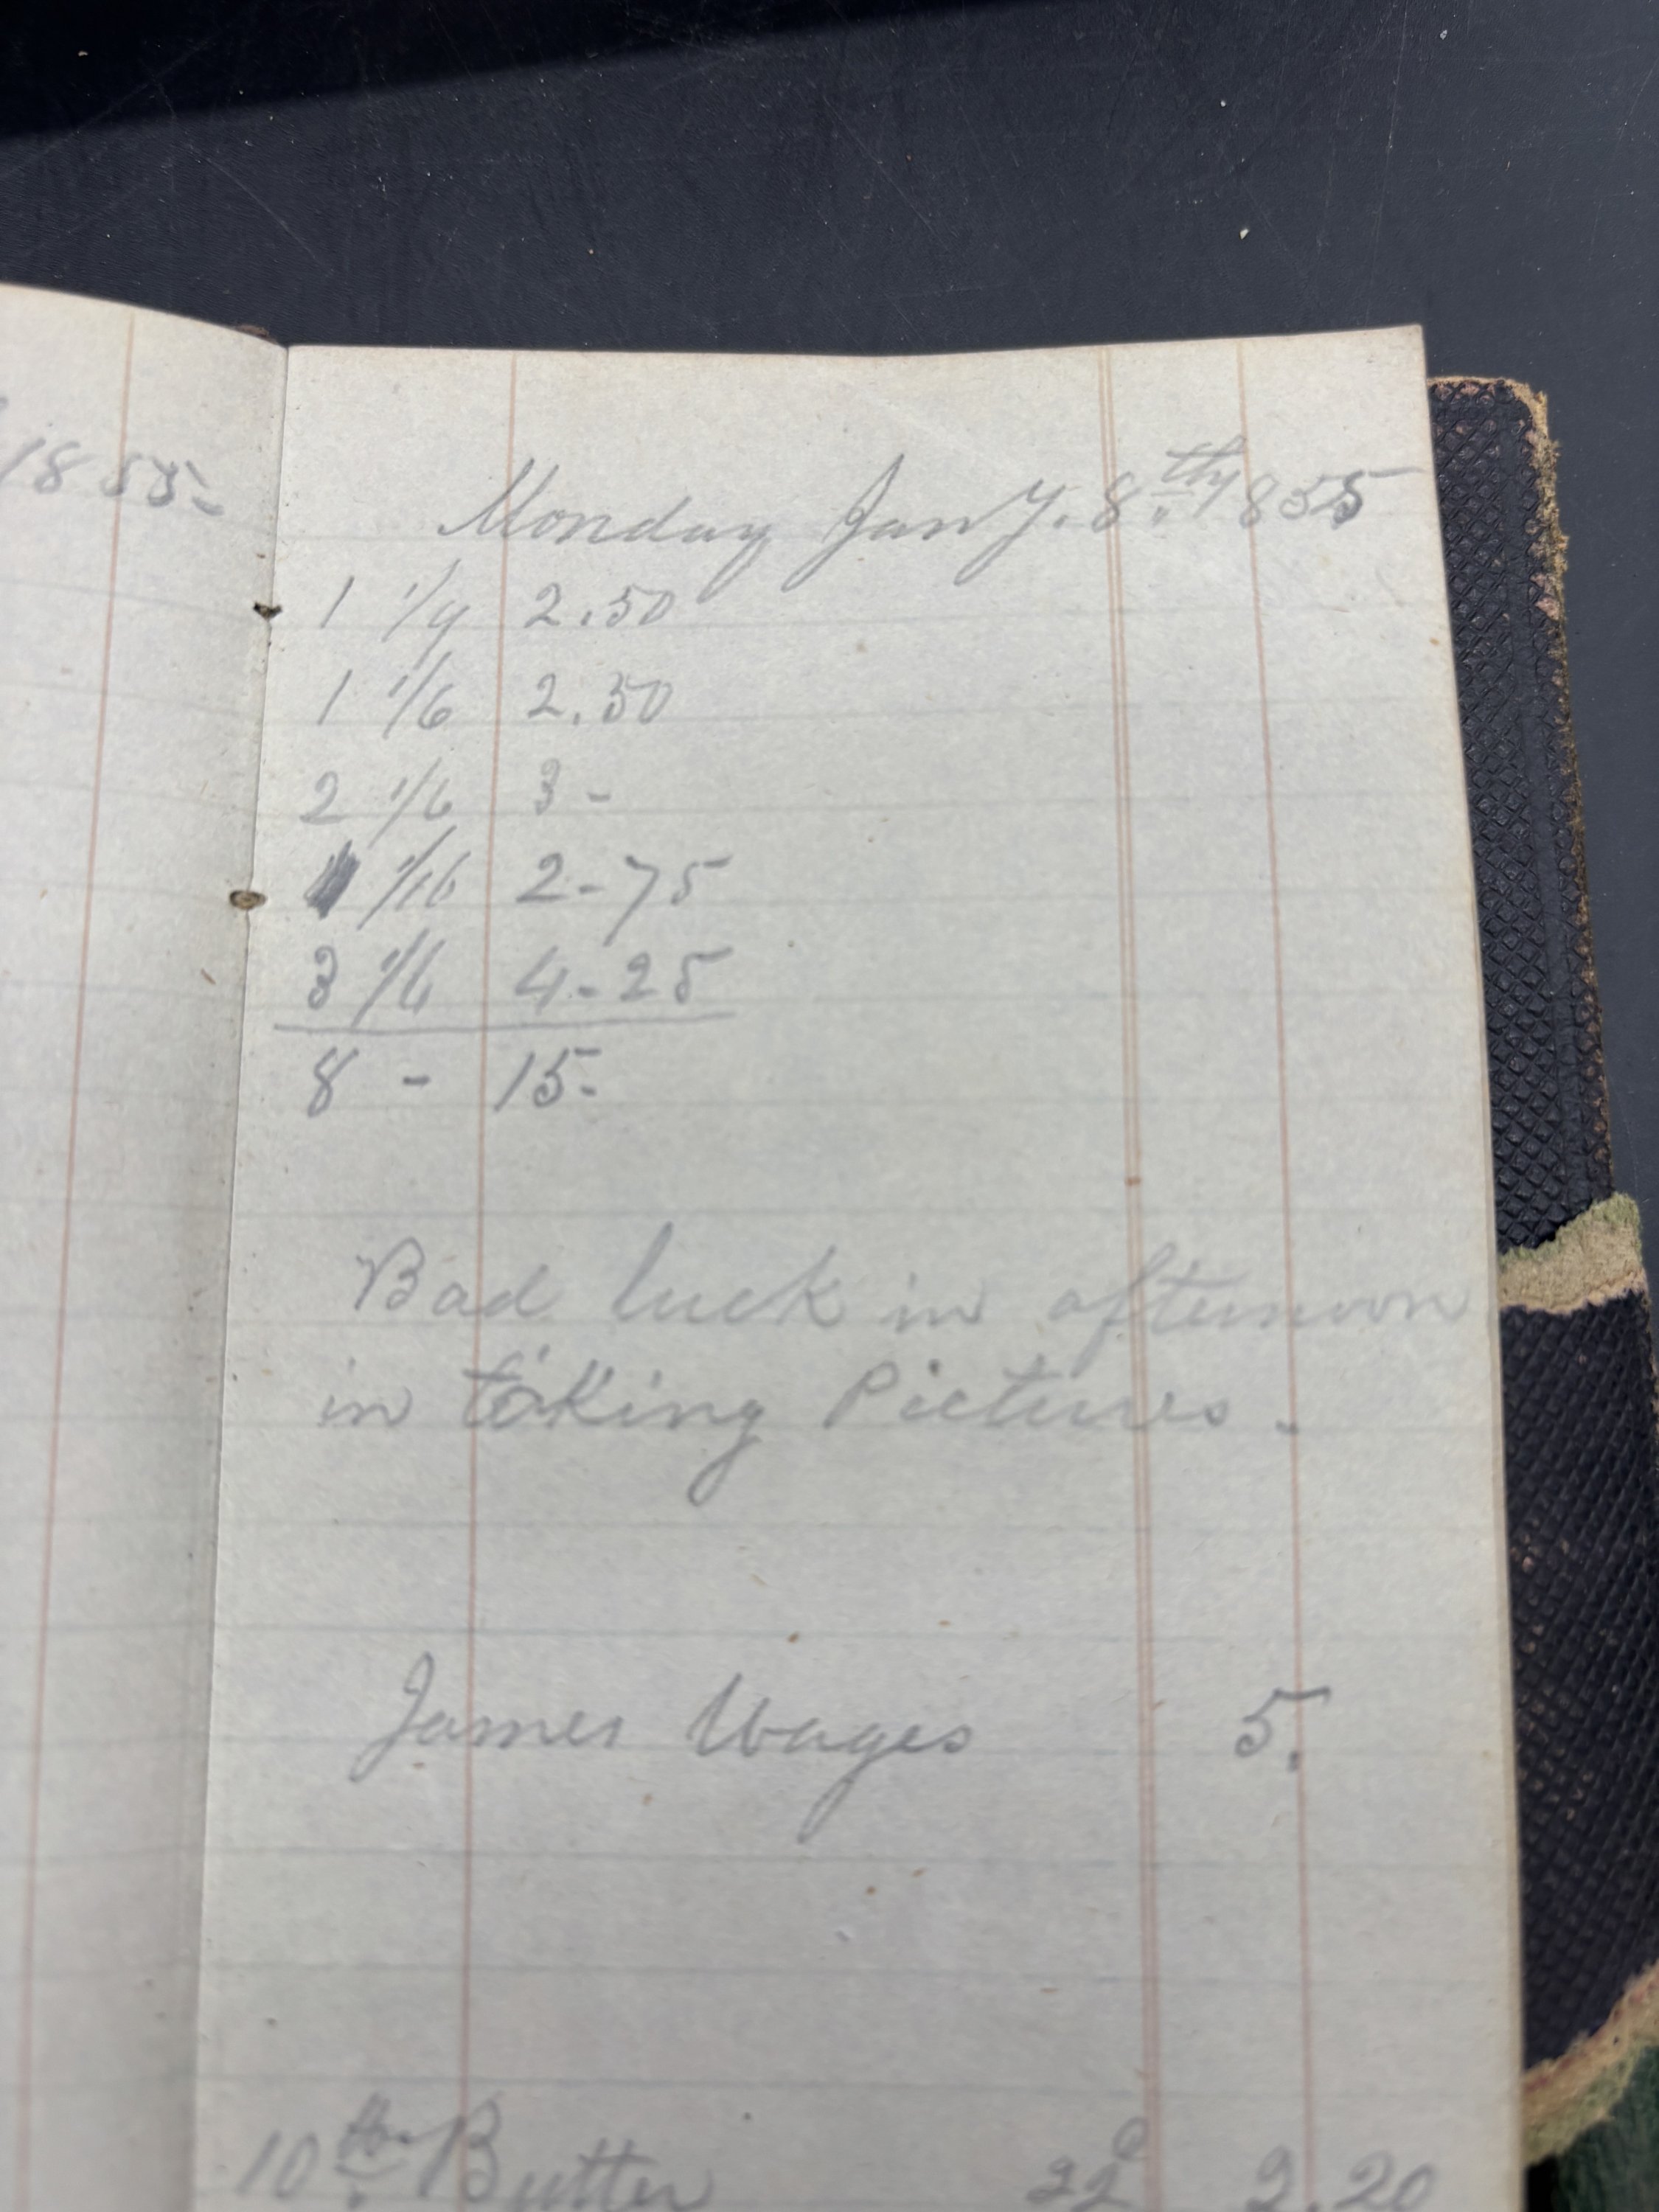 1855-
Monday Jany. 8th 1855
1 1/9 2.50
1 1/6 2.50
2 1/6 3-
1 1/16 2-75
3 1/6 4-25
8 - 15-
Bad luck in afternoon
in taking Pictures.
James Wages 5.
10 lbs. Butter 22c 2.20